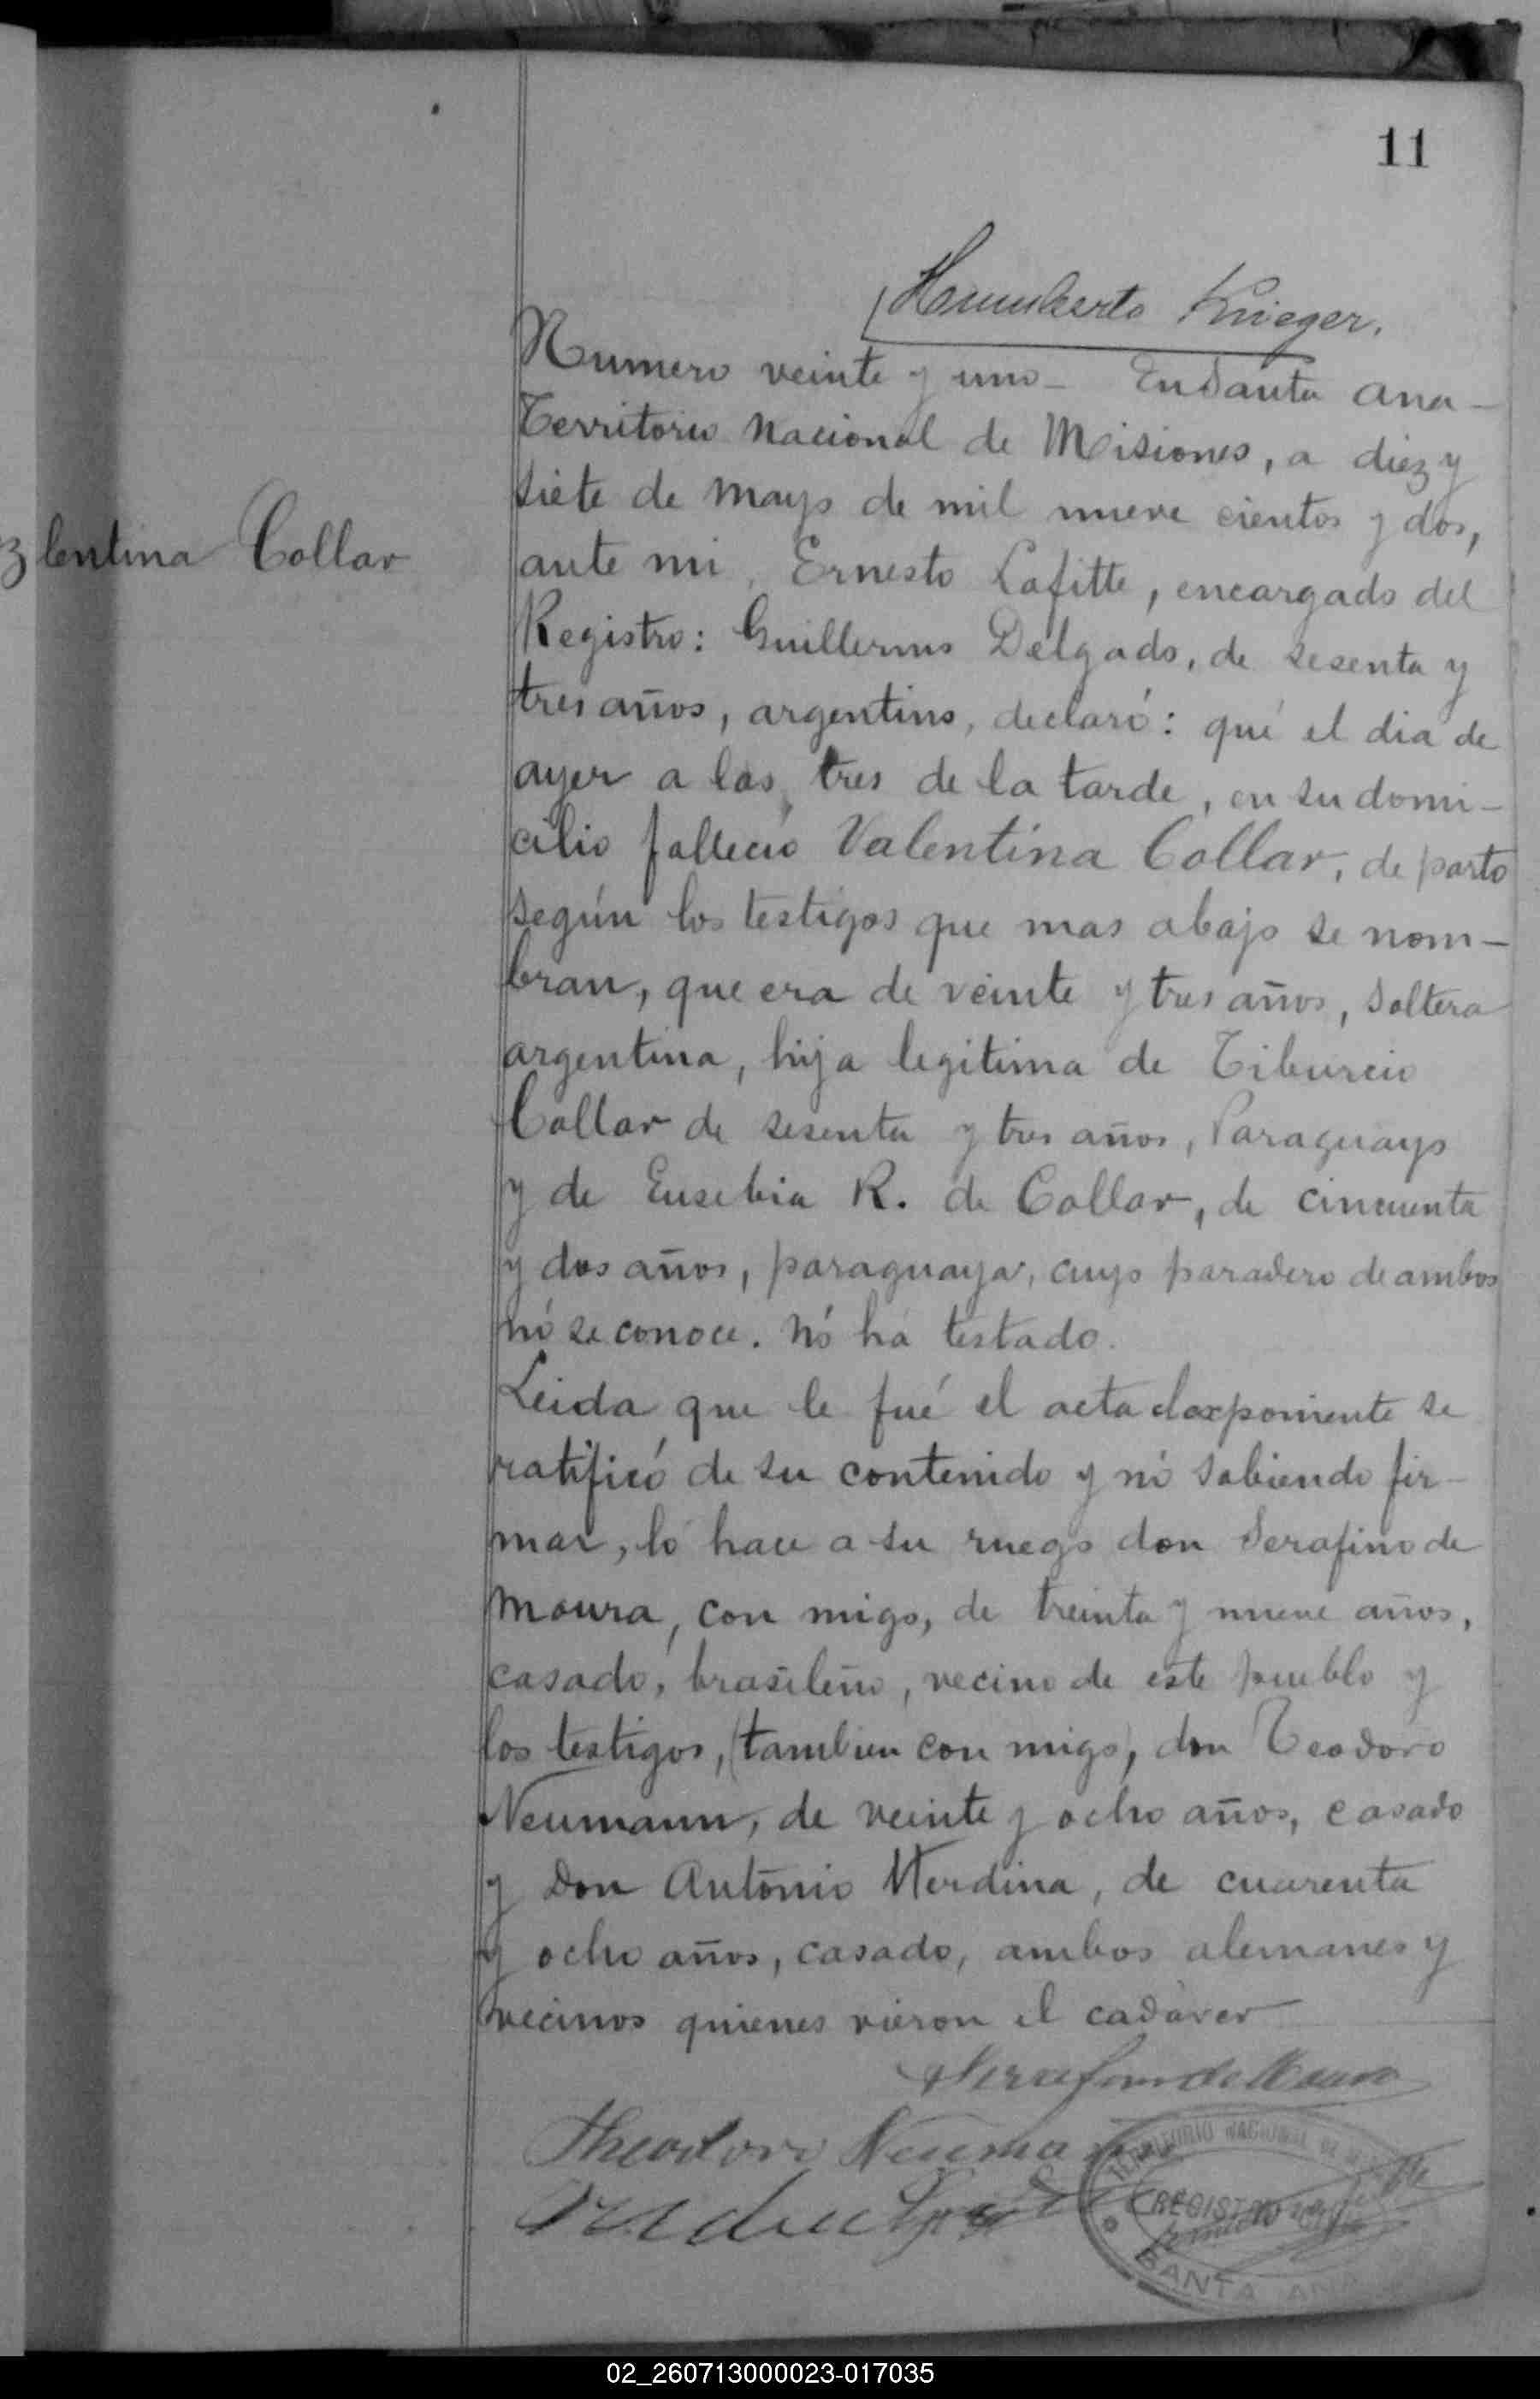 11
Humberto Krieger.
Numero veinte y uno - En Santa Ana -
Territorio Nacional de Misiones, a diez y
siete de Mayo de mil nueve cientos y dos,
lentina Collar
ante mi, Ernesto Lafitte, encargado del
Registro: Guillermo Delgado, de sesenta y
tres años, argentino, declaró: qué el dia de
ayer a las tres de la tarde, en su domi-
cilio falleció Valentina Collar, de parto
según los testigos que mas abajo se nom-
bran, que era de veinte y tres años, soltera
argentina, hija legitima de Tiburcio
Collar de sesenta y tres años, Paraguayo
y de Eusebia R. de Collar, de cincuenta
y dos años, paraguaya, cuyo paradero de ambos
nó se conoce. Nó ha testado.
Leida que le fué el acta el exponiente se
ratificó de su contenido y nó sabiendo fir-
mar, lo hace a su ruego don Serafino de
Moura, con migo, de treinta y nueve años,
casado, brasileño, vecino de este pueblo y
los testigos, (tambien con migo), don Teodoro
Neumann, de veinte y ocho años, casado
y Don Antonio Merdina, de cuarenta
y ocho años, casado, ambos alemanes y
vecinos quienes vieron el cadáver
Serafino de Moura
Theodoro Neumann
TERRITORIO NACIONAL DE
REGISTRO
SANTA ANA
02_260713000023-017035